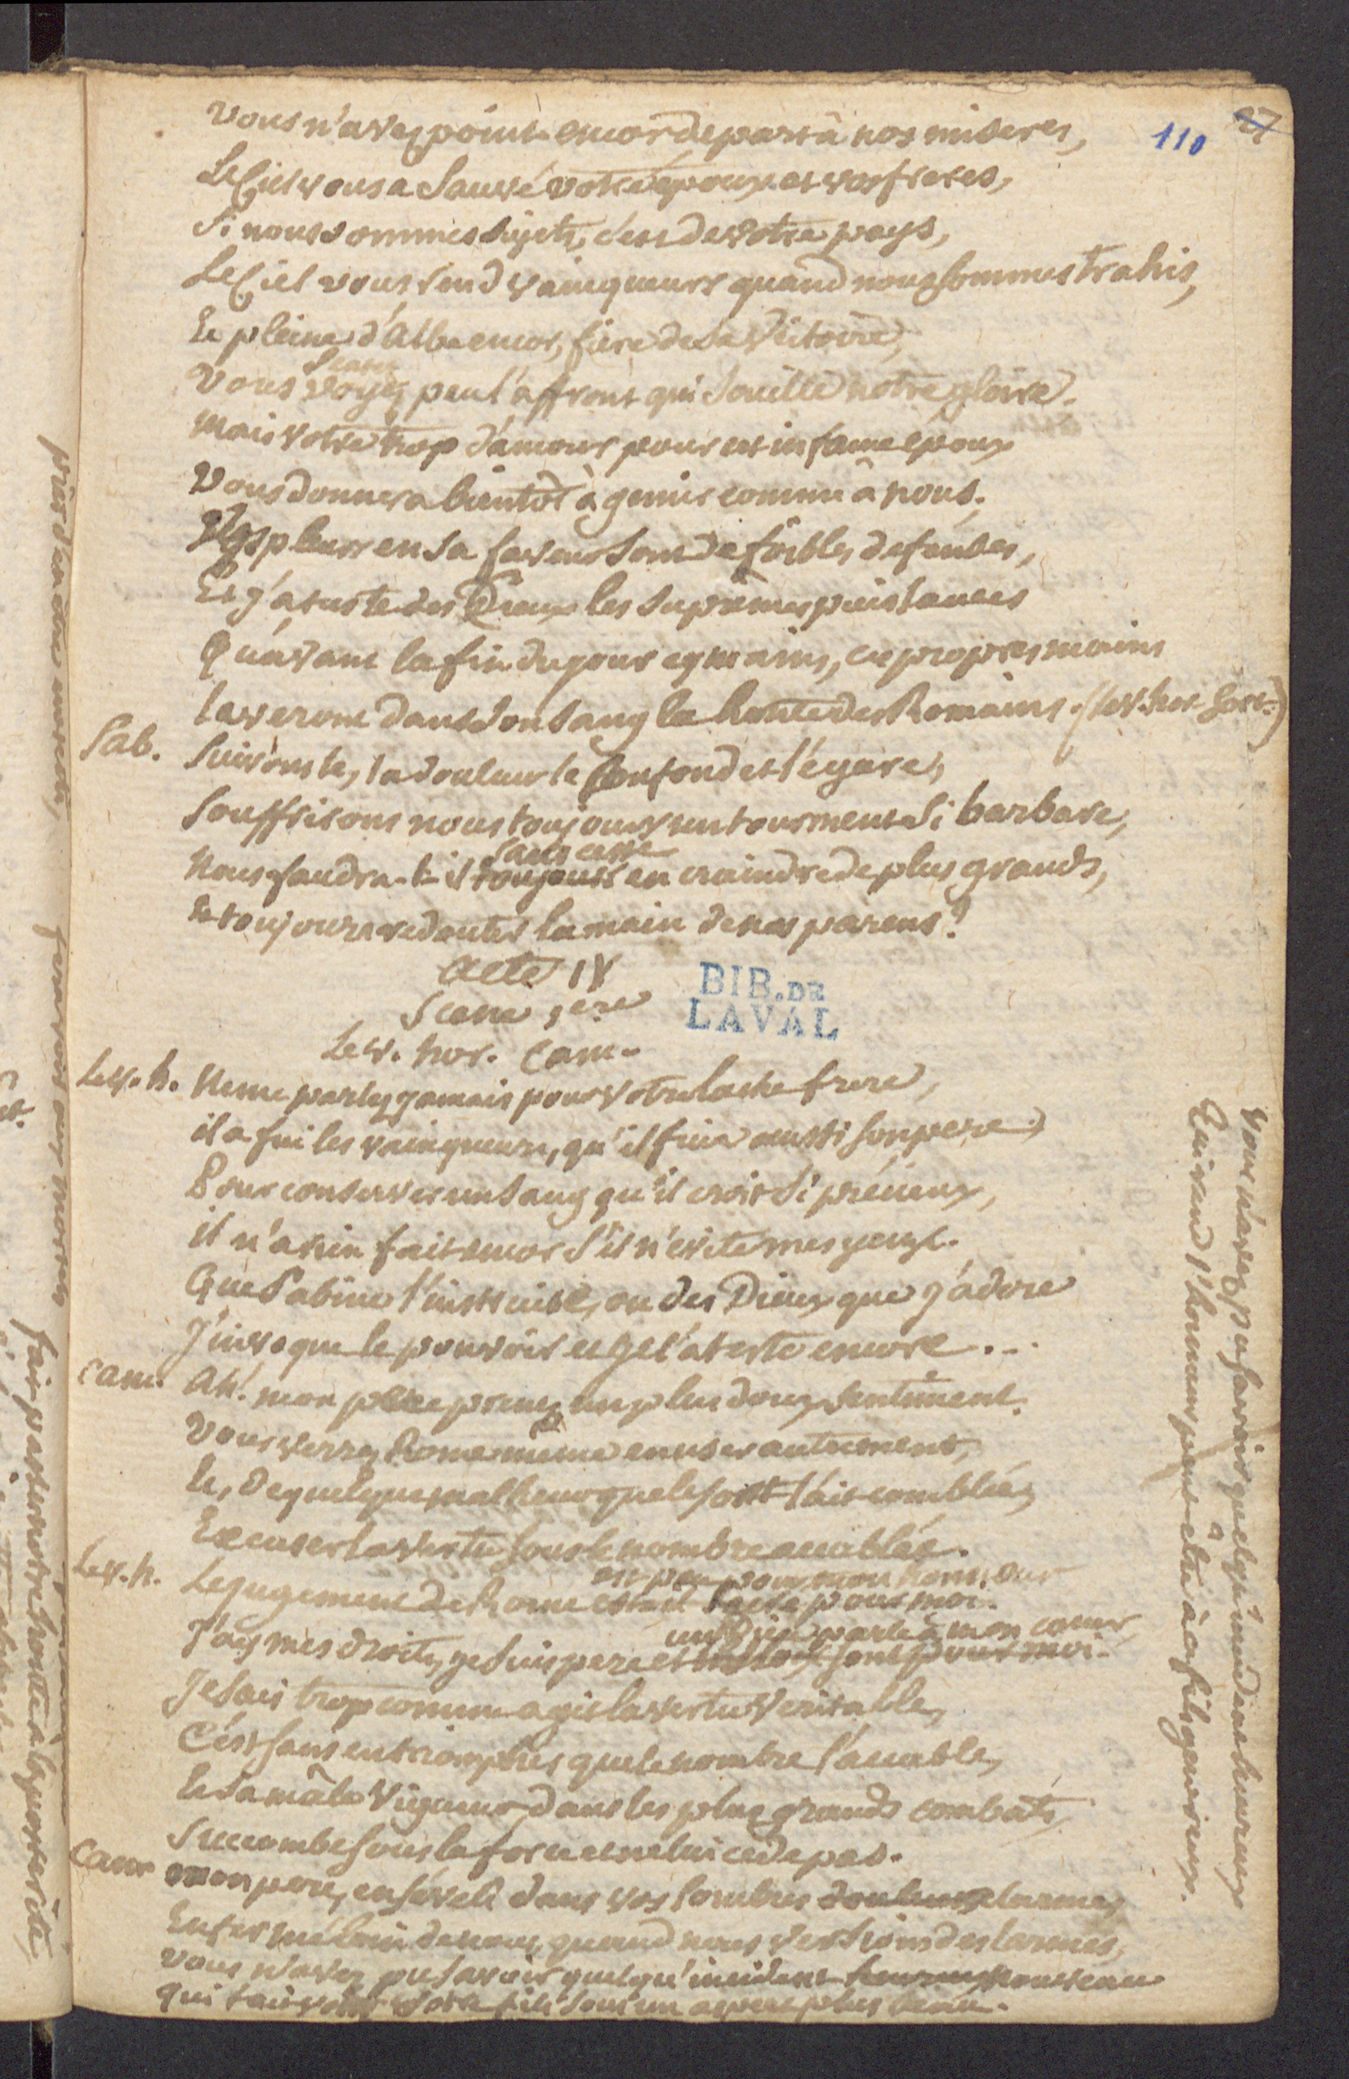 27
110
Vous n'avez point encor de part à nos miseres,
Le Ciel vous a sauvé votre époux et vos freres,
Si nous sommes sujets, c'est de votre pays,
Le Ciel vous rend vainqueurs quand nous sommes trahis,
Et pleine d'Albe encor, fiere de sa victoire,
Vous voyez peu l'affront qui souille notre gloire.
Mais votre trop d'amour pour cet infame epoux
Vous donnera bientôt à gemir comme à nous.
Vos pleurs en sa faveur sont de foibles defenses,
Et j'atteste des Dieux les suprêmes puissances
Qu'avant la fin du jour ces mains, ces propres mains
Laveront dans son sang la honte des Romains. (le v. hor. sort.)
Sab. Suivons le, la douleur le confond et l'égare,
Souffrirons nous toujours un tourment si barbare,
sans cesse
Nous faudra-t-il toujours en craindre de plus grands,
Et toujours redouter la main de nos parens?
Acte IV
Scene 1ere
Le v. hor. Cam.
BIB. DE
LAVAL
Le v. h. Ne me parlez jamais pour votre lache frere,
il a fui les vainqueurs, qu'il fuie aussi son pere
Pour conserver un sang qu'il croit si précieux,
il n'a rien fait encor s'il n'evite mes yeux.
Que Sabine l'instruise, ou des Dieux que j'adore
J'invoque le pouvoir et je l'ateste encore...
Cam. Ah! mon pere prenez un plus doux sentiment.
Vous verrez Rome meme en user autrement,
Et, de quelque malheur que le sort l'ait comblée,
Excuser la vertu sous le nombre accablée.
est peu pour mon honneur
Le v. h. Le jugement de Rome est pour moi.
un Dieu parle à mon coeur
J'ay mes droits, je suis pere et sont pour moi.
Je sais trop comme agit la vertu veritable,
C'est sans en triompher que le nombre l'accable,
Et sa mâle vigueur dans les plus grands combats
Succombe sous la force et ne lui cede pas.
Cam mon pere, enseveli dans vos sombres douleurs larmes
Enfermé loin de nous quand nous versions des larmes,
Vous n'avez pu savoir quelqu'incident heureux nouveau
Qui fait votre fils sous un aspect plus beau.
Vous n'avez pu savoir quelqu'incident heureux
Qui rend l'honneur peut-être à ce fils genereux.